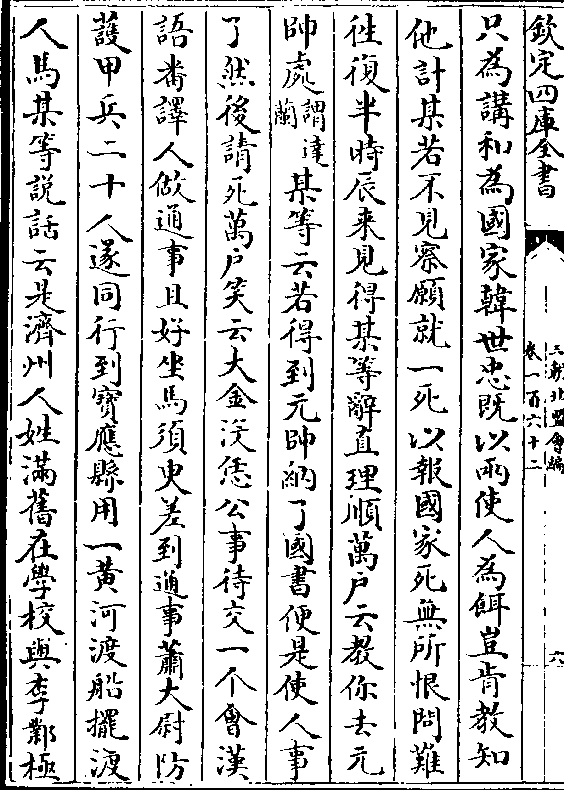 欽定四庫全書
三朝北盟會編
卷一百六十二
六
只為講和為國家韓世忠既以兩使人為餌豈肯教知
他計某若不見察願就一死以報國家死無所恨問難
往復半時辰来見得某等辭直理順萬户云教你去元
帥處謂達蘭某等云若得到元帥納了國書便是使人事
了然後請死萬户笑云大金没恁公事待交一个會漢
語畨譯人做通事且好坐馬須臾差到通事蕭大尉防
䕶甲兵二十人遂同行到寳應縣用一黄河渡船擺渡
人馬某等説話云是濟州人姓滿舊在學校與李鄴極